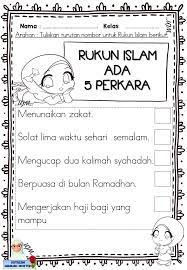 Nama
Kelas
Arahan : Tuliskan turutan nombor untuk Rukun Islam berikut.
RUKUN ISLAM
ADA
5 PERKARA
Menunaikan zakat.
Solat lima waktu sehari semalam.
Mengucap dua kalimah syahadah.
Berpuasa di bulan Ramadhan.
Mengerjakan haji bagi yang
mampu